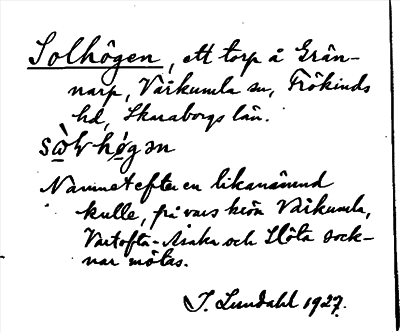 Solhögen, ett torp å Grän-
narp, Vårkumla sn, Frökinds
hd, Skaraborgs län.
sɷ̀lvhø̗gən
Namnet efter en likanämnd
kulle, på vars krön Vårkumla,
Vartofta-Åsaka och Slöta sock-
nar mötas.
J. Lundahl 1927.